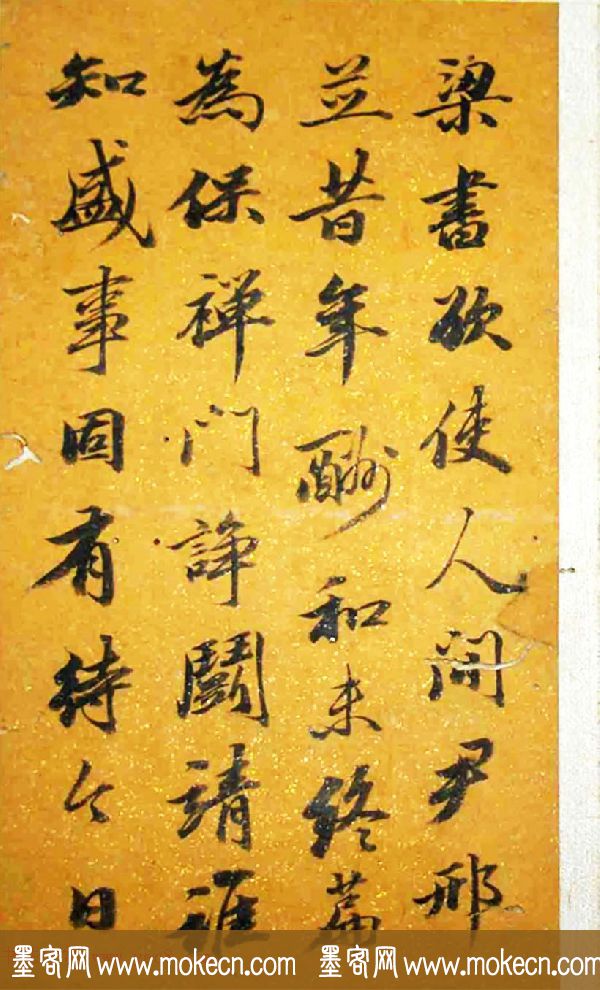 梁書欲使人間尹邢
並昔年酬和未終篇
為保禪門諍鬪請
知盛事固有待今日
墨客网 www.mokecn.com 墨客网 www.mokecn.com